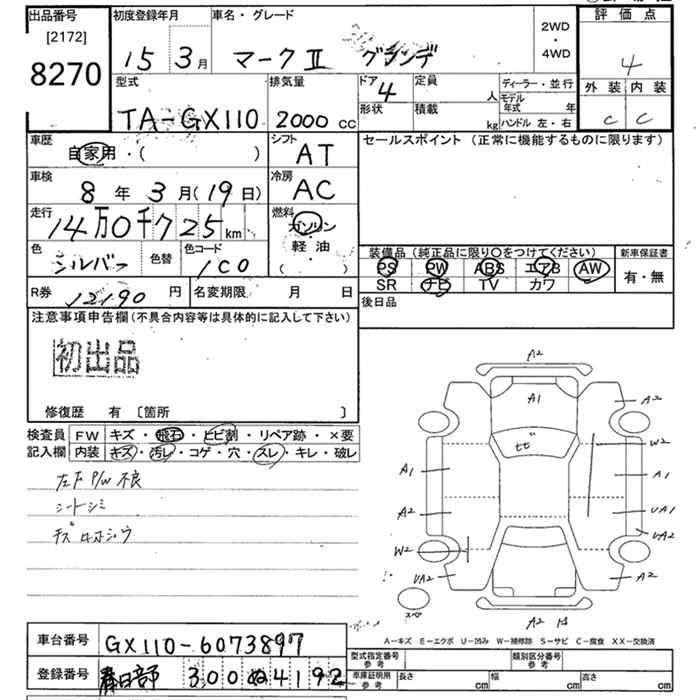 出品番号
[2172]
8270
初度登録年月
15 3月
車名・グレード
マークⅡ グランデ
2WD
・
4WD
評価点
4
外装 内装
C C
型式
TA-GX110
排気量
2000 cc
ドア
4
形状
定員
人
積載
kg
ディーラー・並行
モデル年式 年
ハンドル 左・右
車歴
自家用・( )
シフト
AT
車検
8年 3月(19日)
冷房
AC
走行
14万0千725km
燃料
ガソリン
・
軽油
( )
色
シルバー
色替
色コード
1C0
R券
12190円
名変期限 月 日
セールスポイント (正常に機能するものに限ります)
装備品 (純正品に限り〇をつけてください)
PS PW ABS エアB AW
SR ナビ TV カワ
新車保証書
有・無
後日品
注意事項申告欄(不具合内容等は具体的に記入して下さい)
初出品
修復歴 有 〔箇所 〕
検査員記入欄
FW キズ・飛石・ヒビ割・リペア跡・×要
内装 キズ・汚レ・コゲ・穴・スレ・キレ・破レ
左F P/W 不良
シートシミ
A2
A1
A2
ヒビ
W2
A1
A1
A2
UA1
UA2
W2
UA2
A2
A2
A-キズ E-エクボ U-凹み W-補修跡 S-サビ C-腐食 XX-交換済
車台番号
GX110-6073897
登録番号
春日部 300 ぬ 4192
型式指定番号
参考
類別区分番号
参考
車庫証明用
参考
長さ cm
幅 cm
高さ cm